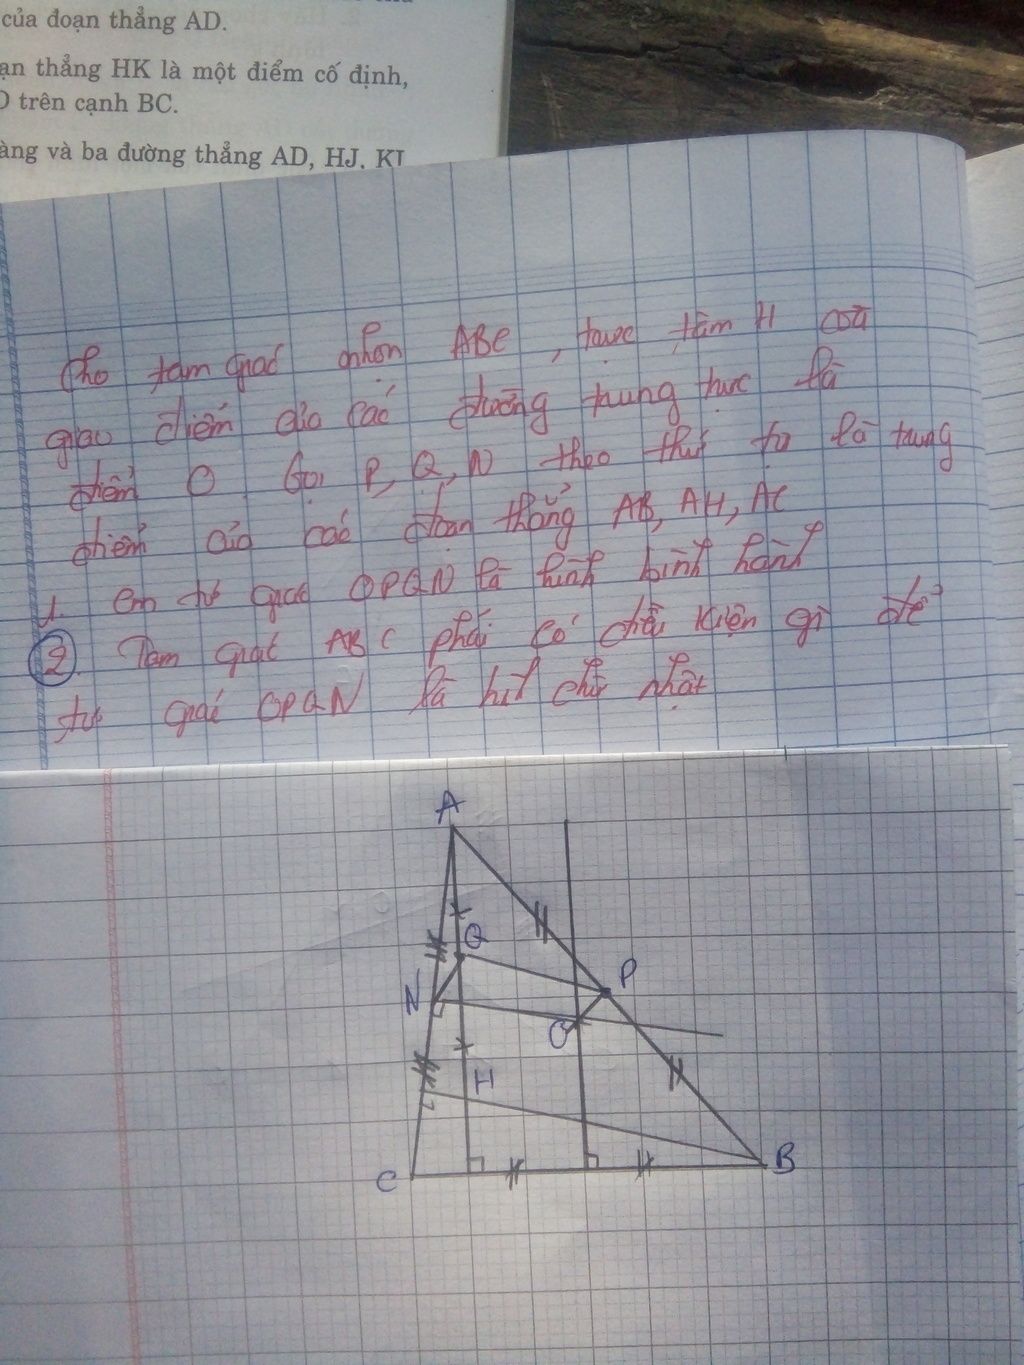 của đoạn thẳng AD.
ạn thẳng HK là một điểm cố định,
D trên cạnh BC.
àng và ba đường thẳng AD, HJ, KI
Cho tam giác nhọn ABC, trực tâm H còn
giao điểm của các đường trung trực là
điểm O. Gọi P, Q, N theo thứ tự là trung
điểm của các đoạn thẳng AB, AH, AC
1. cm tứ giác OPQN là hình bình hành
2. Tam giác ABC phải có điều kiện gì để
tứ giác OPQN là hì chữ nhật
A
Q
P
N
O
H
C
B